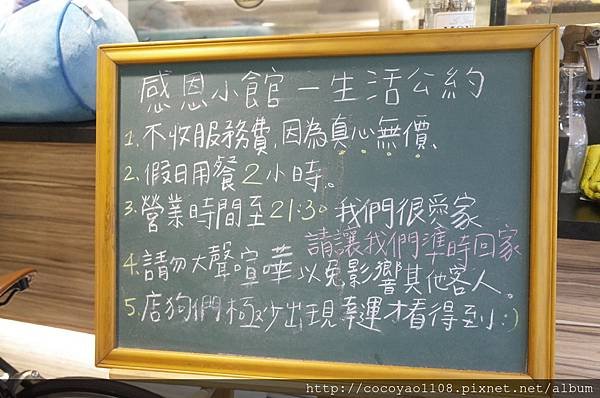 感恩小館-生活公約
1.不收服務費,因為真心無價、
2.假日用餐2小時。
3.營業時間至21:30 我們很愛家
請讓我們準時回家
4.請勿大聲喧嘩以免影響其他客人。
5.店狗們極少出現幸運才看得到:)
http://cocoyao1108.pixnet.net/album